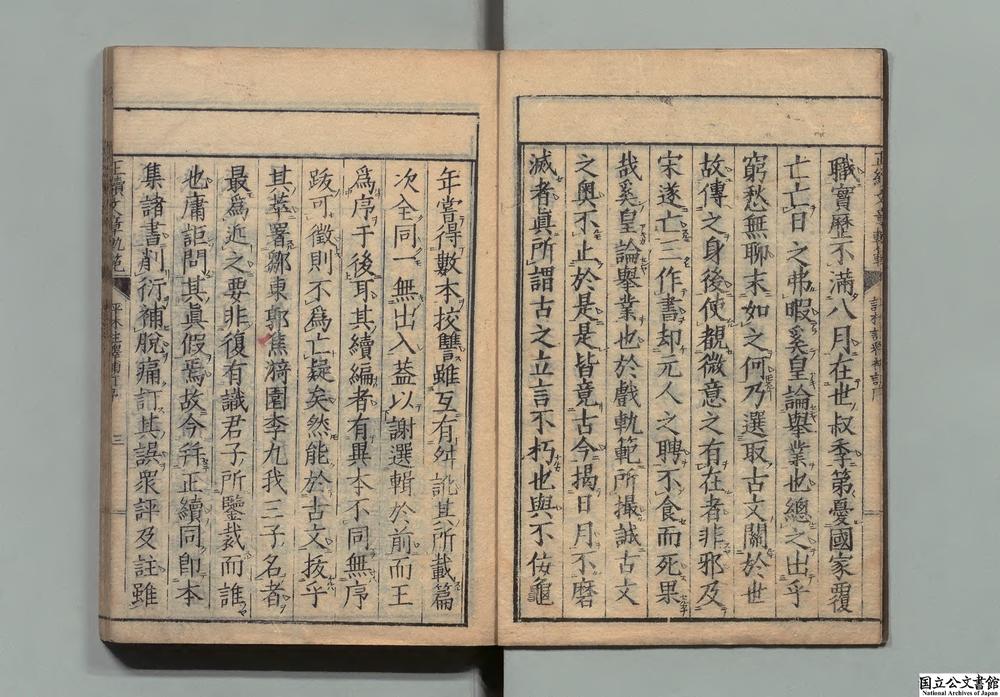 職實歷不滿八月在世叔季第憂國家覆
亡亡日之弗暇奚皇論舉業也總之出乎
窮愁無聊末如之何乃選取古文關於世
故傳之身後使覩微意之有在者非邪及
宋遂亡三作書却元人之聘不食而死果
哉奚皇論舉業也於戲軌範所撮誠古文
之奧不止於是是皆竟古今揭日月不磨
滅者眞所謂古之立言不朽也與不佞龜
年嘗得數本校讐雖互有舛訛其所載篇
次全同一無出入葢以謝選輯於前而王
爲序于後耳其續編者有異本不同無序
跋可徵則不爲亡疑矣然能於古文拔乎
其萃署鄒東郭焦漪園李九我三子名者
最爲近之要非復有識君子所鑒裁而誰
也庸詎問其眞假焉故今幷正續同卽本
集諸書削衍補脫痛訂其誤衆評及註雖
正續文章軌範
評林註釋補訂序
三
国立公文書館
National Archives of Japan